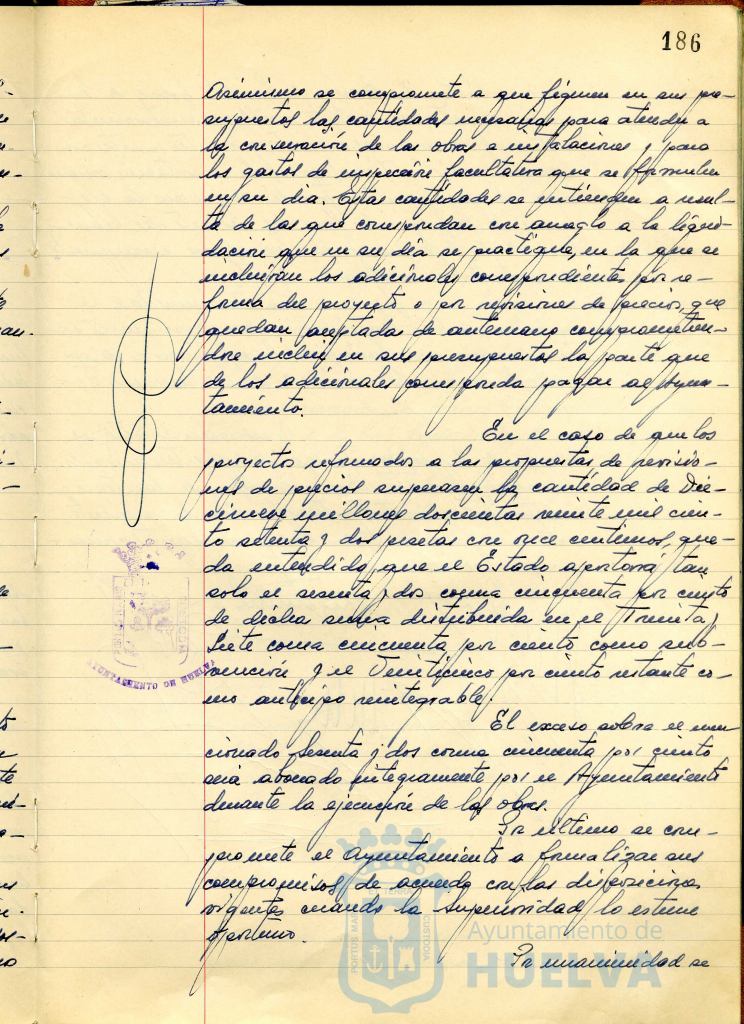 186
Asimismo se compromete a que figuren en sus pre-
supuestos las cantidades necesarias para atender a
la conservación de las obras e instalaciones y para
los gastos de inspección facultativa que se formulen
en su día. Estas cantidades se entienden a resul-
ta de las que correspondan con arreglo a la liqui-
dación que en su día se practique, en la que se
incluirán los adicionales correspondientes por re-
forma del proyecto o por revisiones de precios, que
quedan aceptadas de antemano comprometien-
dose incluir en sus presupuestos la parte que
de los adicionales corresponda pagar al Ayun-
tamiento.
En el caso de que los
proyectos reformados a las propuestas de revisio-
nes de precios superasen la cantidad de Die-
cinueve millones doscientas veinte mil cien-
to setenta y dos pesetas con once centimos, que-
da entendido que el Estado aportará tan
solo el sesenta y dos coma cincuenta por ciento
de dicha suma distribuida en el Treinta y
Siete coma cincuenta por ciento como sub-
vención y el Veinticinco por ciento restante co-
mo anticipo reintegrable.
El exceso sobre el men-
cionado Sesenta y dos coma cincuenta por ciento
será abonado integramente por el Ayuntamiento
durante la ejecución de las obras.
Por último se com-
promete el Ayuntamiento a formalizar sus
compromisos de acuerdo con las disposiciones
vigentes cuando la Superioridad lo estime
oportuno.
Por unanimidad se
AYUNTAMIENTO DE HUELVA
CUSTODIA
Ayuntamiento de
HUELVA